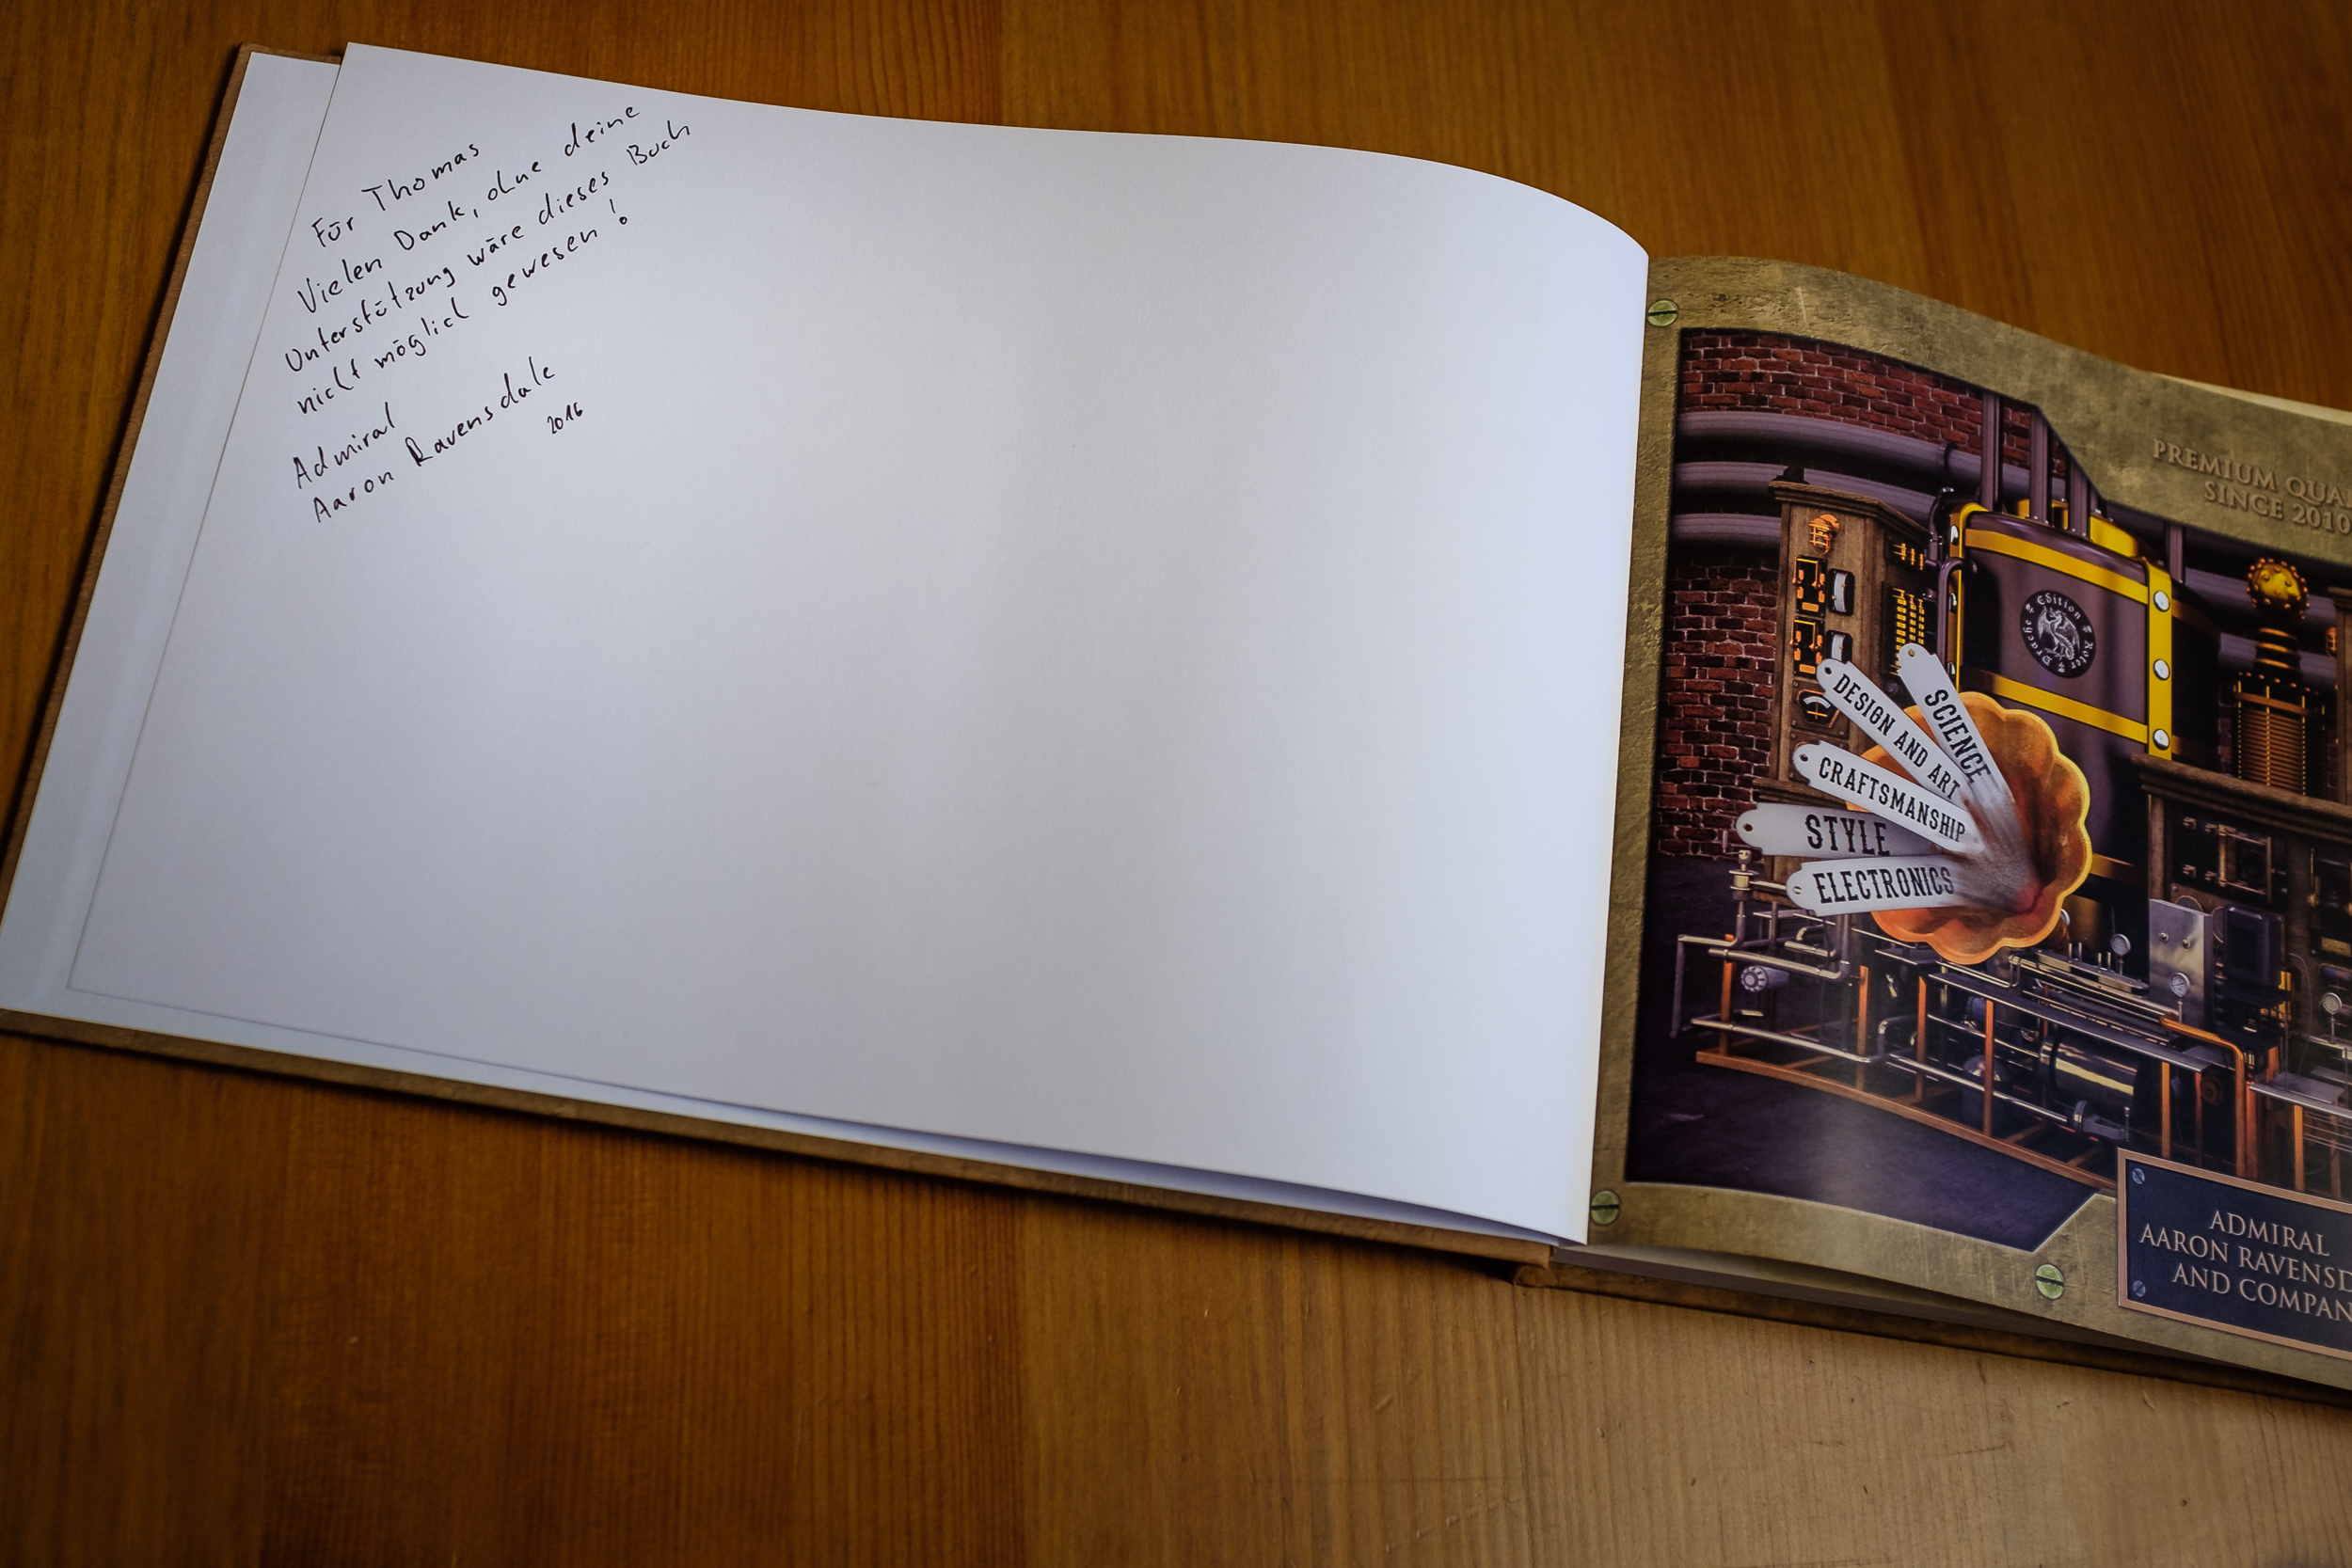 Für Thomas
Vielen Dank, ohne deine
Unterstützung wäre dieses Buch
nicht möglich gewesen!
Admiral
Aaron Ravensdale
2016
PREMIUM QUA
SINCE 2010
Edition Roter Drache
SCIENCE
DESIGN AND ART
CRAFTSMANSHIP
STYLE
ELECTRONICS
ADMIRAL
AARON RAVENSD
AND COMPAN